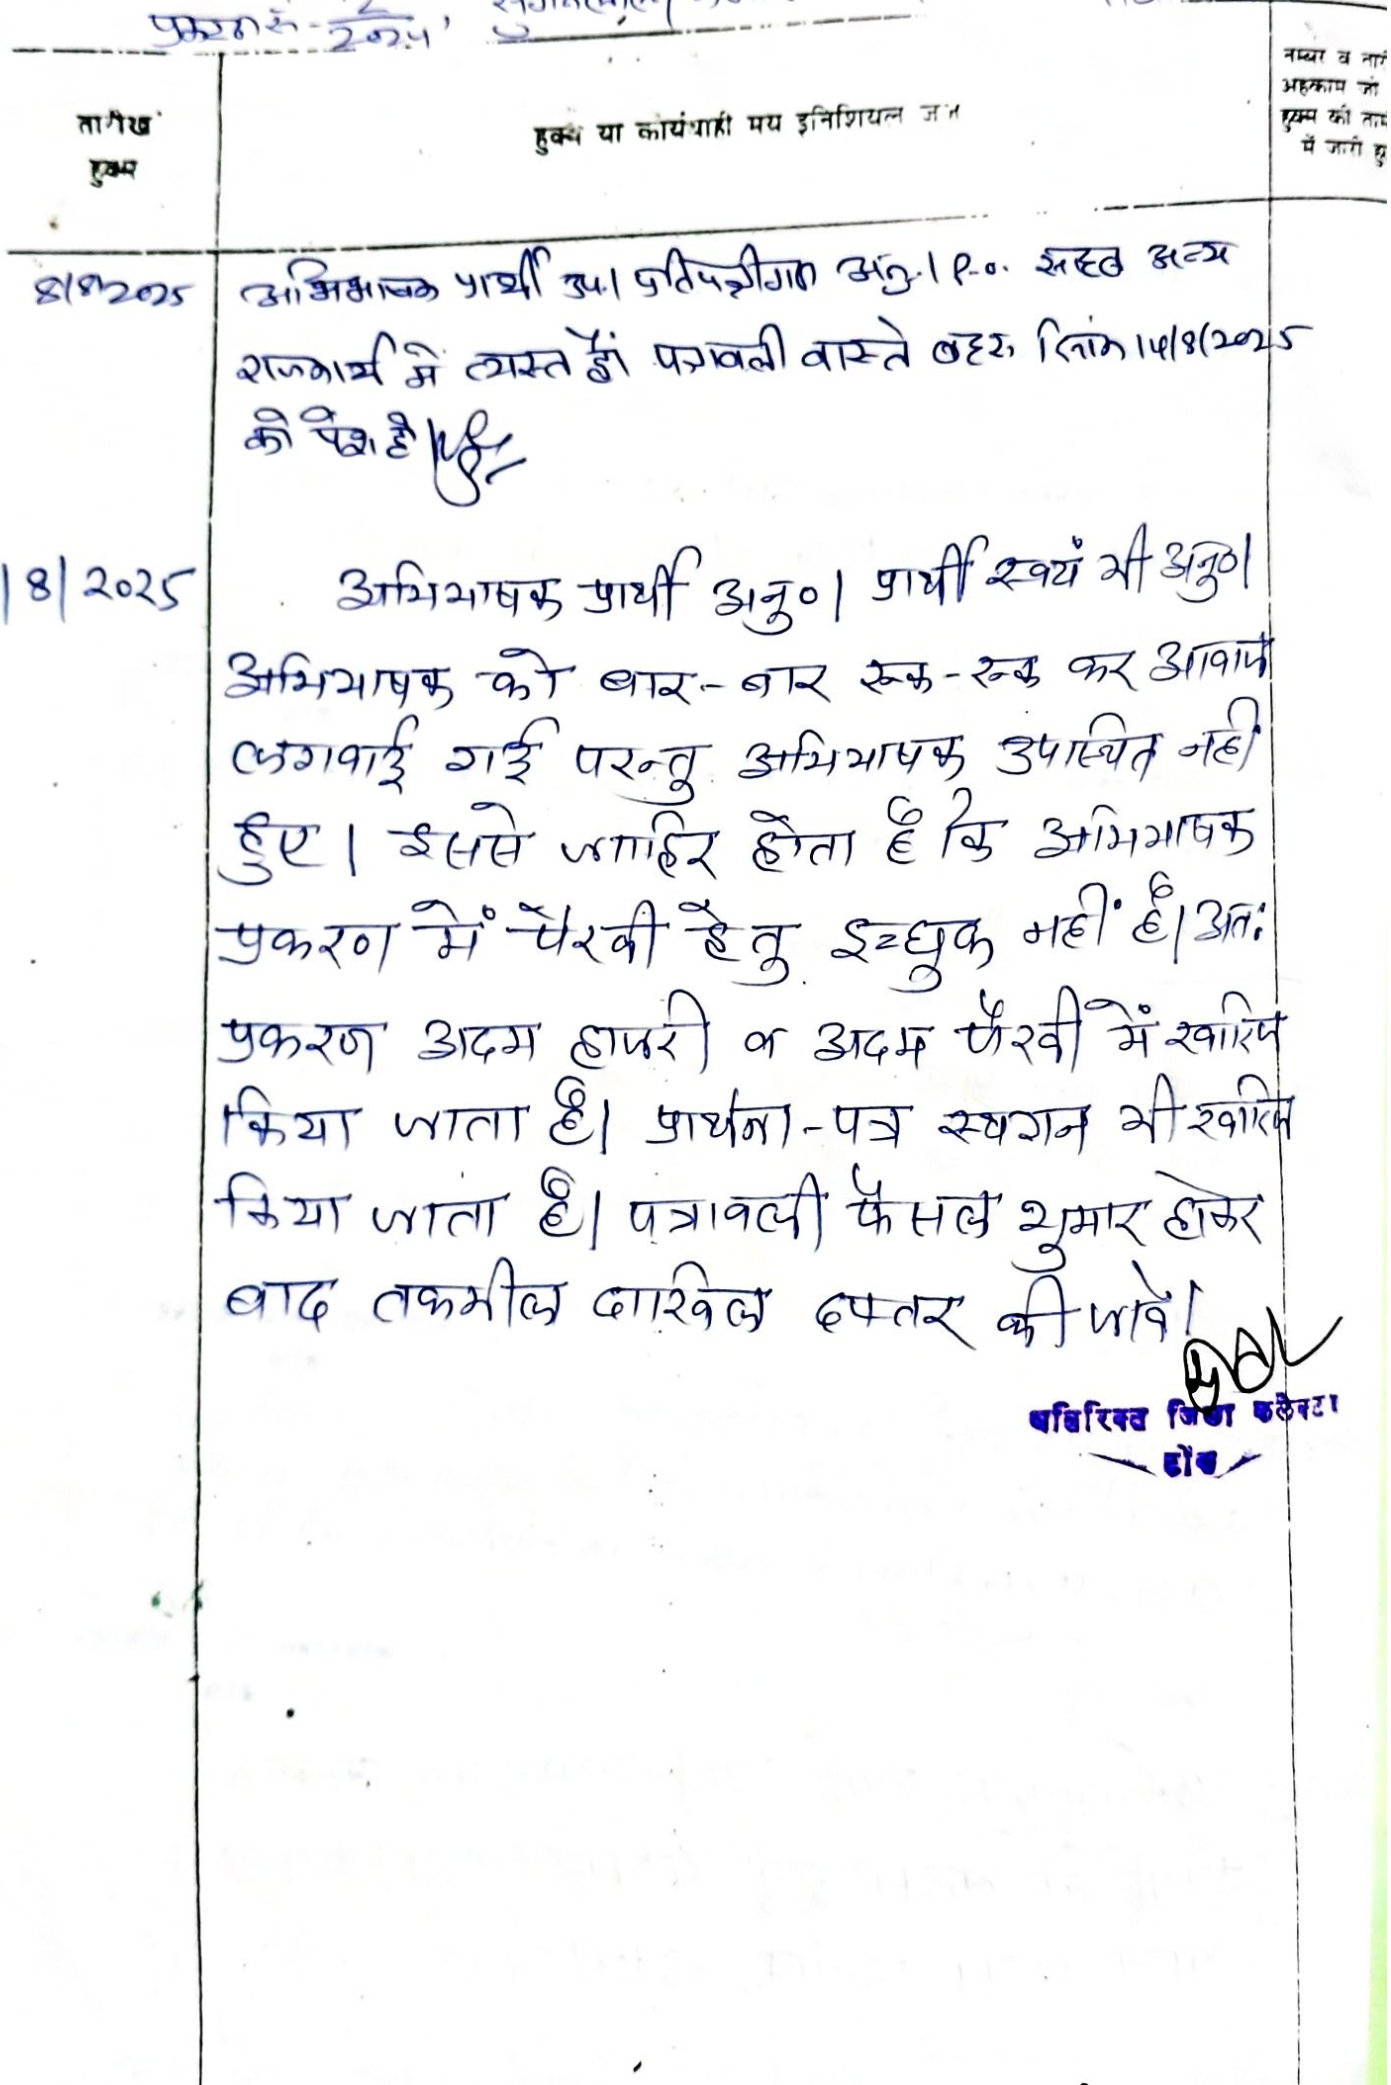 प्रकरण सं - 2/2025,
तारीख हुक्म
हुक्म या कार्यवाही मय इनिशियल जज
नम्बर व तारी
अहकाम जो
हुक्म की ताम
में जारी हु
8/8/2025 अभिभाषक प्रार्थी उप.। प्रतिपक्षीगण अनु.। P.O. अन्य
राजकार्य में व्यस्त हैं। पत्रावली वास्ते बहस दिनांक 14/8/2025
को पेश है।
/8/2025 अभिभाषक प्रार्थी अनु०। प्रार्थी स्वयं भी अनु०।
अभिभाषक को बार-बार रूक-रूक कर आवाज
लगवाई गई परन्तु अभिभाषक उपस्थित नही
हुए। इससे जाहिर होता है कि अभिभाषक
प्रकरण में पैरवी हेतु इच्छुक नहीं है। अतः
प्रकरण अदम हाजरी व अदम पैरवी में खारिज
किया जाता है। प्रार्थना-पत्र स्थगन भी खारिज
किया जाता है। पत्रावली फैसल शुमार होकर
बाद तकमील दाखिल दफ्तर की जावे।
अतिरिक्त जिला कलेक्टर
टोंक